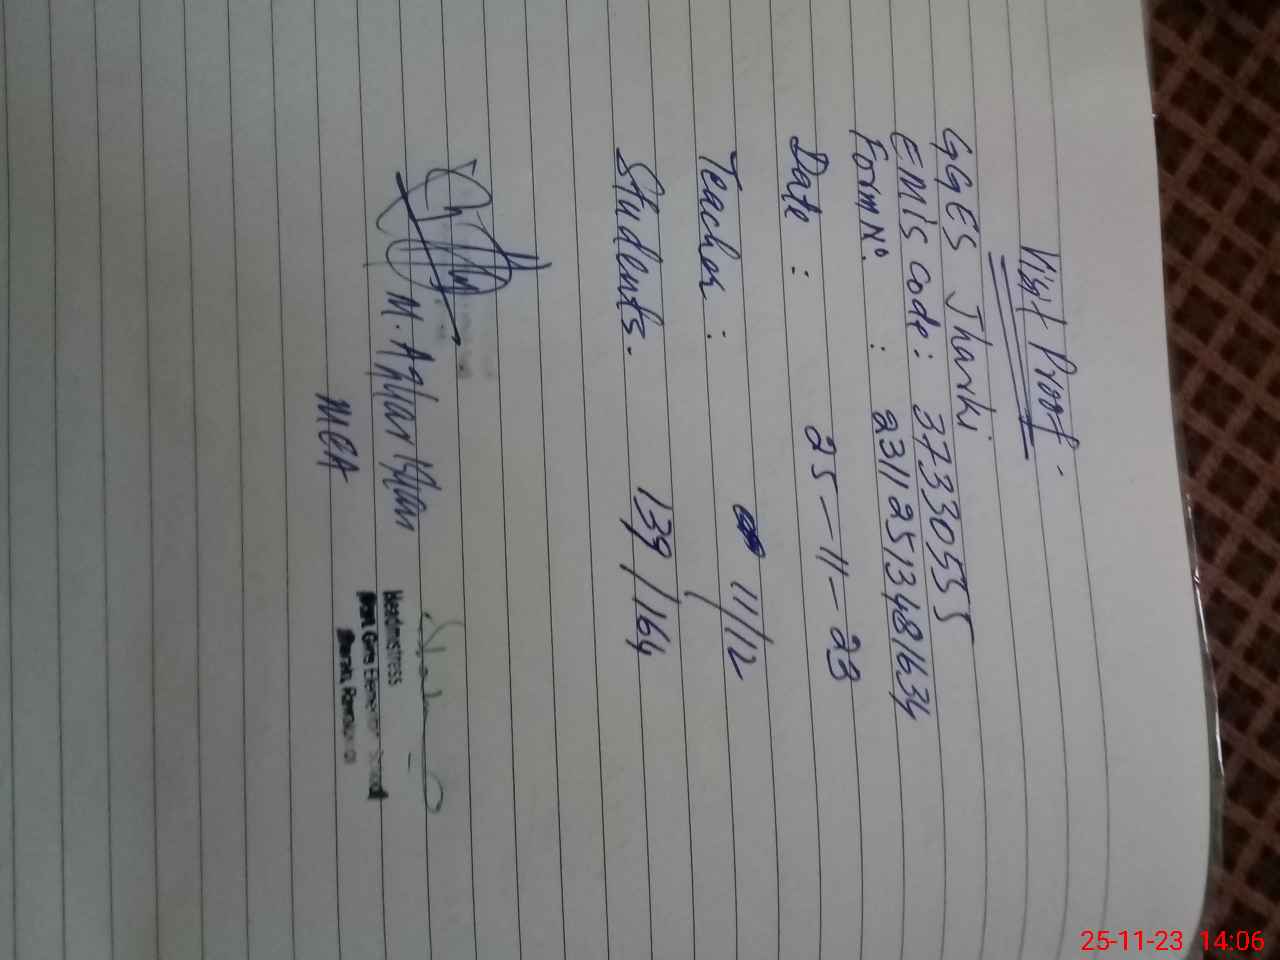 Visit Proof.
GGES Jhanki
EMIS code: 37330555
Form No. : 23112513481634
Date : 25-11-23
Teacher : 11/12
Students. 139/164
M. Azhar Khan
MEA
Headmistress
Girls Elementary School
25-11-23 14:06